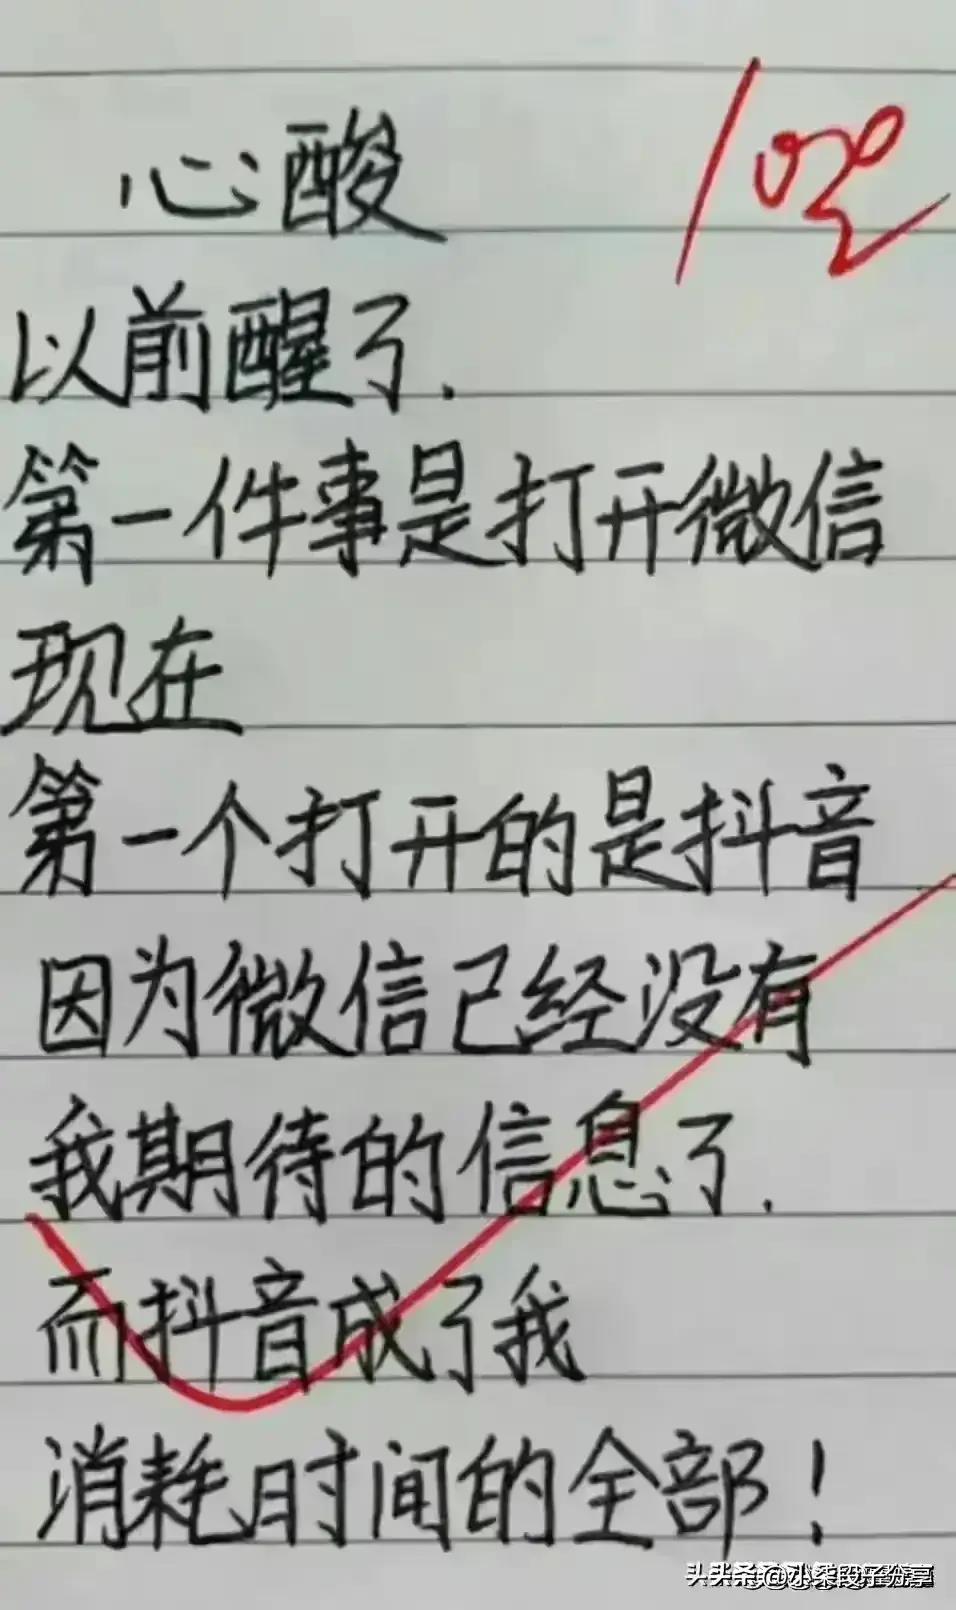 心酸
100
以前醒了.
第一件事是打开微信
现在
第一个打开的是抖音
因为微信已经没有
我期待的信息了.
而抖音成了我
消耗时间的全部!
头条@小柒段子分享